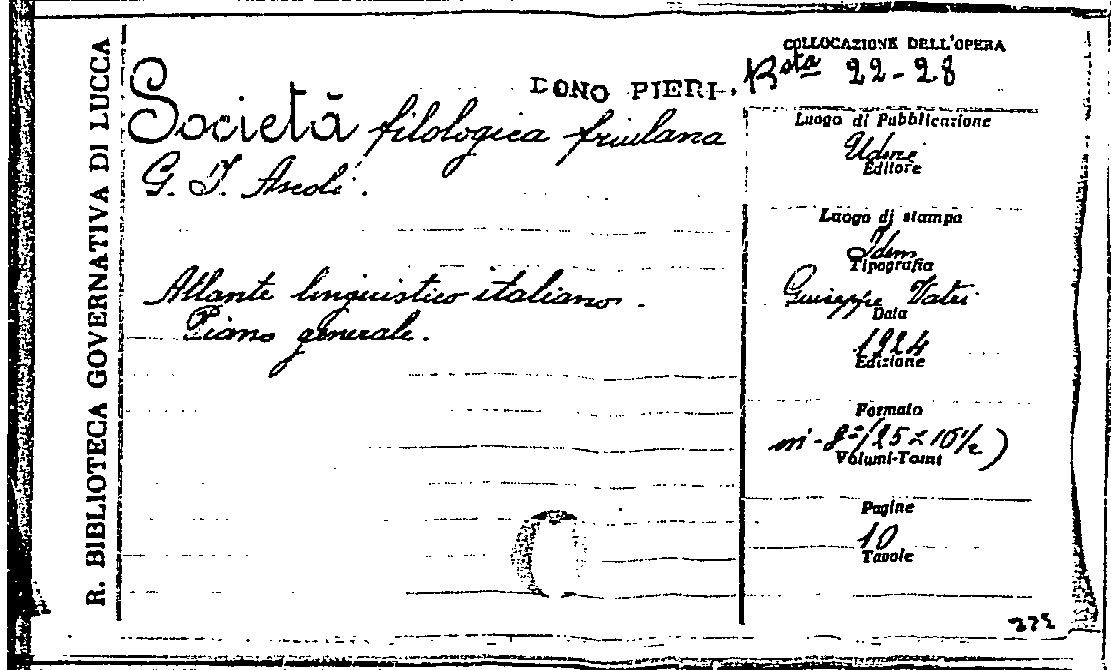 R. BIBLIOTECA GOVERNATIVA DI LUCCA
DONO PIERI.
COLLOCAZIONE DELL'OPERA
Bsta 22-28
Società filologica friulana
G. I. Ascoli.
Atlante linguistico italiano.
Piano generale.
Luogo di Pubblicazione
Udine
Editore
Luogo di stampa
Idem
Tipografia
Giuseppe Vatri
Data
1924
Edizione
Formato
in-8º (25 x 16½)
Volumi-Tomi
Pagine
10
Tavole